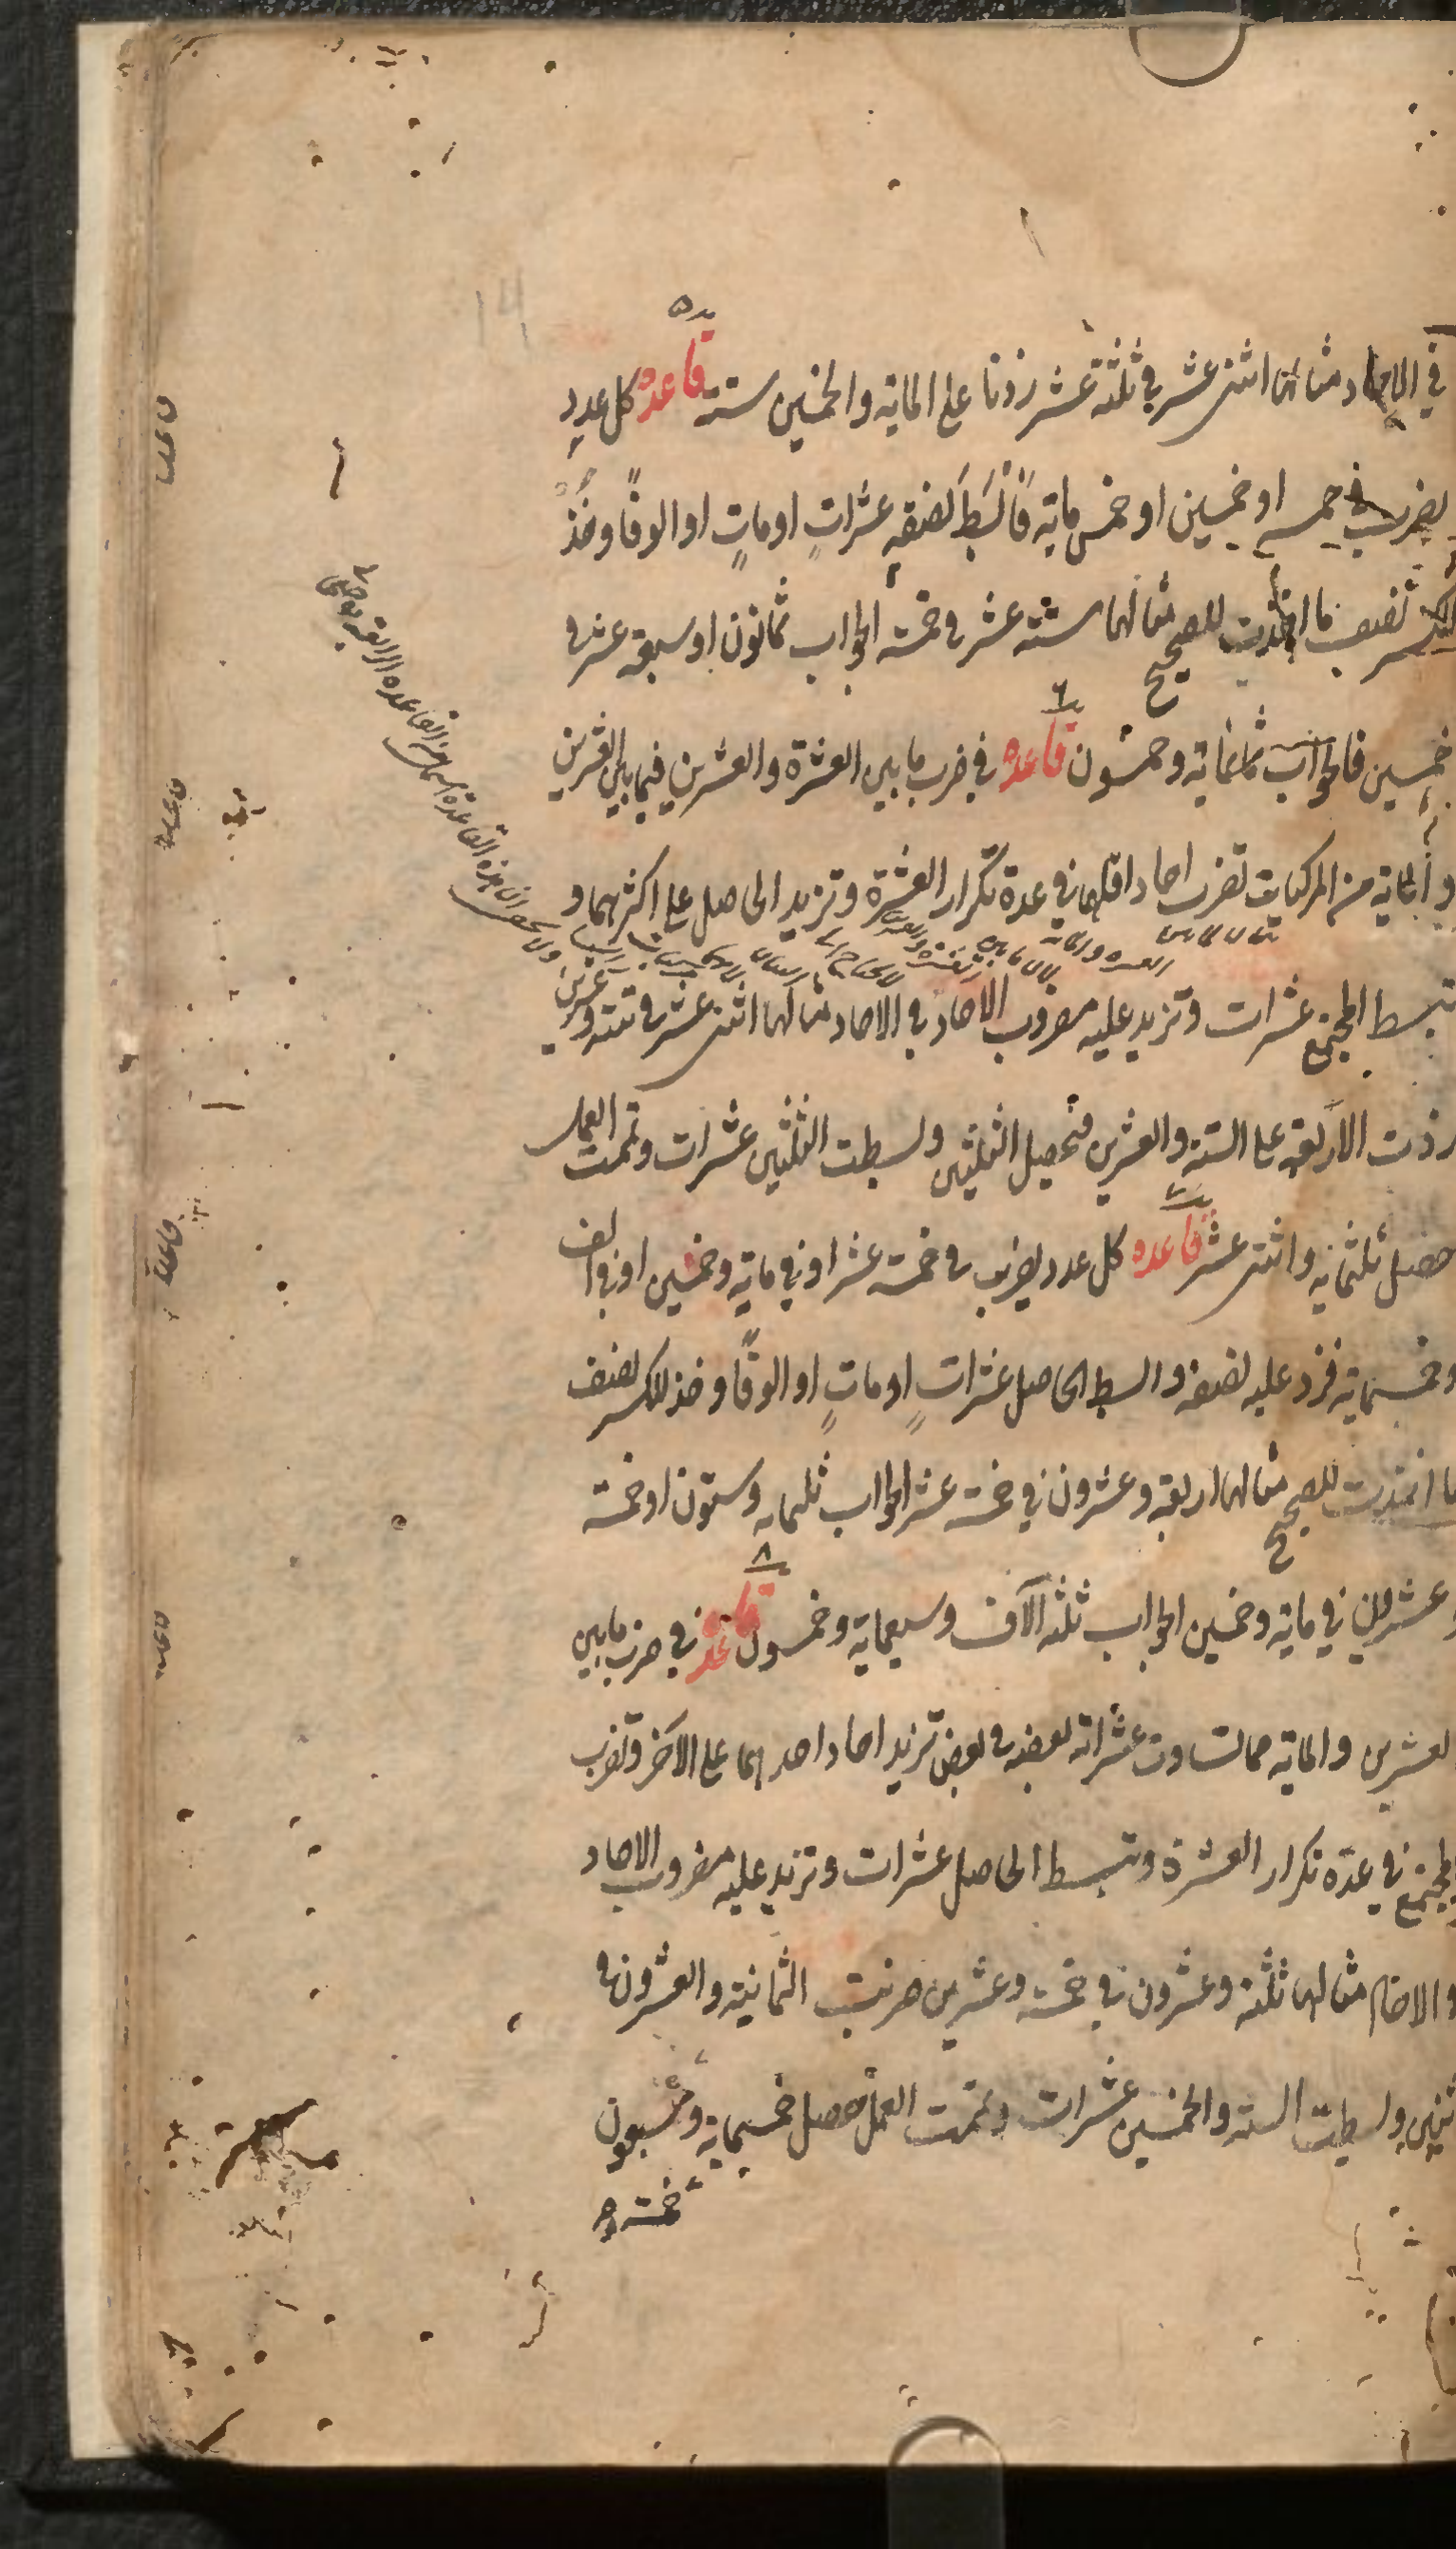 في الاحاد مثالها اثنى عشر في ثلثة عشر زدنا على الماية والخمسين ستة قاعده كل عدد
يضرب في خمسه او خمسين او خمس ماية فابسط نصفه عشرات او مات او الوفا وخذ
للكسر نصف ما اخذت للصحيح مثالها ستة عشر في خمسة الجواب ثمانون او سبعة عشر في
خمسين فالجواب ثمانماية وخمسون قاعده في ضرب ما بين العشرة والعشرين فيما بين العشرين
و الماية من المركبات تضرب احاد اقلهما في عدة تكرار العشرة وتزيد الحاصل على اكثرهما و
تبسط المجتمع عشرات وتزيد عليه مضروب الاحاد في الاحاد مثالها اثنى عشر في ستة وعشرين
زدت الاربعة على الستة والعشرين فتحصل الثلثين وبسطت الثلثين عشرات وتممت العمل
حصل ثلثماية واثنى عشر قاعده كل عدد يضرب في خمسة عشر او في ماية وخمسين او في الف
وخمسماية فزد عليه نصفه وابسط الحاصل عشرات او مات او الوفا وخذ للكسر نصف
ما اخذت للصحيح مثالها اربعة وعشرون في خمسة عشر الجواب ثلثمايه وستون او خمسة
وعشرين في ماية وخمسين الجواب ثلثه آلاف وسبعماية وخمسون قاعده في ضرب ما بين
العشرين والماية مما تساوت عشراته بعضه في بعض تزيد احاد احدهما على الآخر وتضرب
المجتمع في عدة تكرار العشرة وتبسط الحاصل عشرات وتزيد عليه مضروب الاحاد
في الاحاد مثالها ثلثة وعشرون في خمسة وعشرين ضربت الثمانية والعشرون في
اثنين وبسطت الستة والخمسين عشرات وتممت العمل حصل خمسماية وسبعون
خمسة و